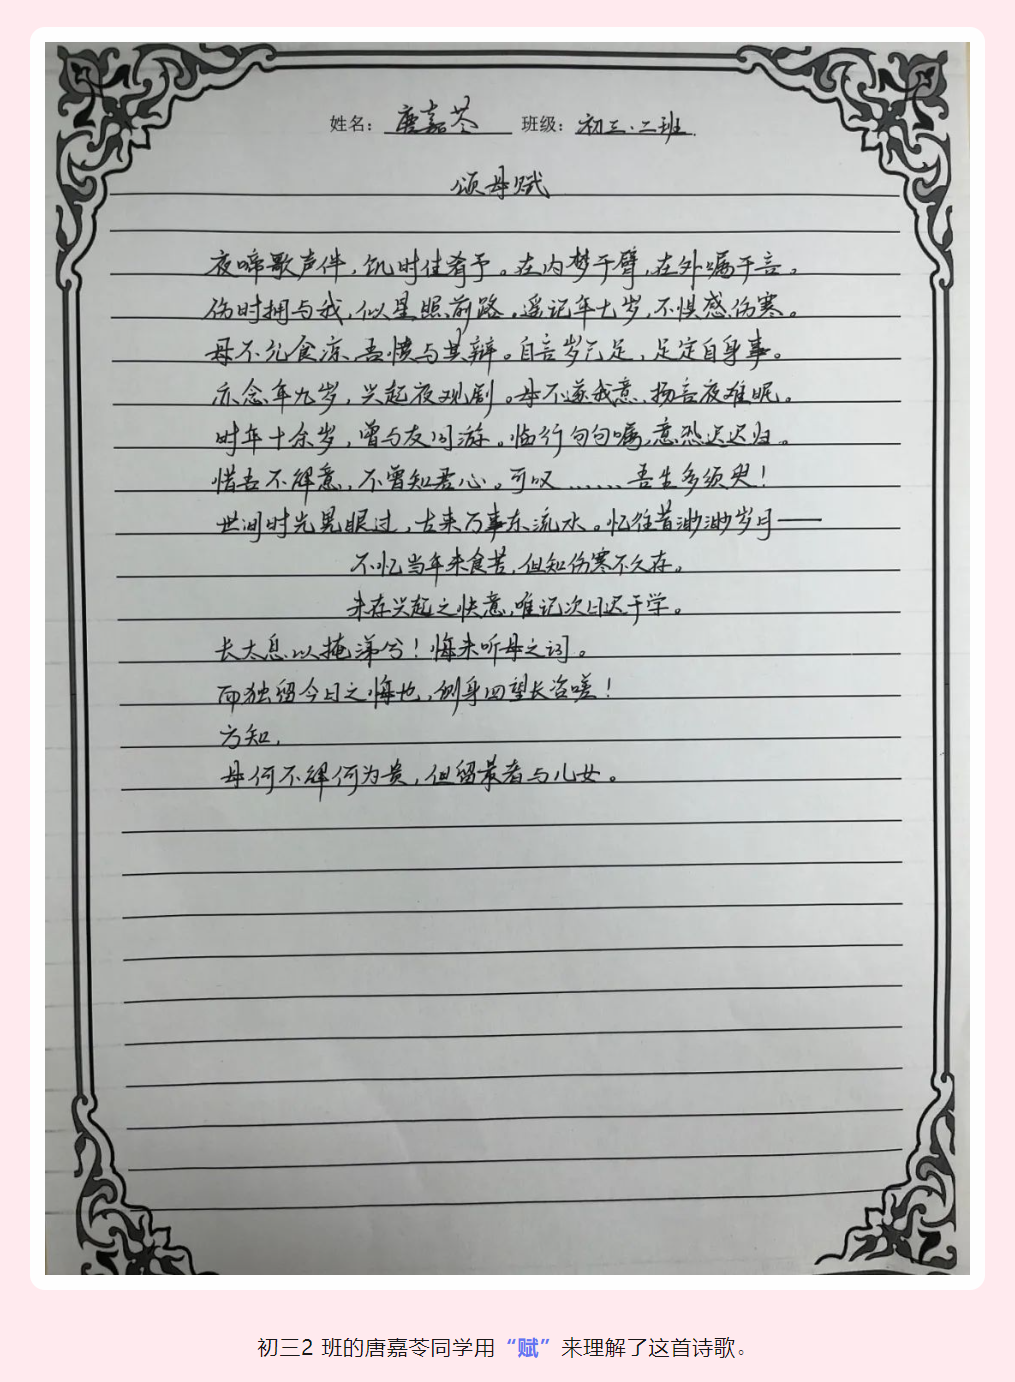 姓名：唐嘉苓 班级：初三·二班
颂母赋
夜啼歌声伴，饥时佳肴予。在内梦于臂，在外嘱于言。
伤时拥与我，似星照前路。遥记年七岁，不惧感伤寒。
母不允食凉，吾愤与其辩。自言岁已足，足定自身事。
亦念年九岁，兴起夜观剧。母不遂我意，扬言夜难眠。
时年十余岁，曾与友同游。临行句句嘱，意恐迟迟归。
惜吾不解意，不曾知君心。可叹……吾生多须臾！
世间时光晃眼过，古来万事东流水。忆往昔渺渺岁月——
不忆当年未食苦，但知伤寒不久存。
未存兴起之快意，唯记次日迟于学。
长太息以掩涕兮！悔未听母之词。
而独留今日之悔也，侧身回望长咨嗟！
方知，
母何不解何为贵，但留最者与儿女。
初三2 班的唐嘉苓同学用“赋”来理解了这首诗歌。